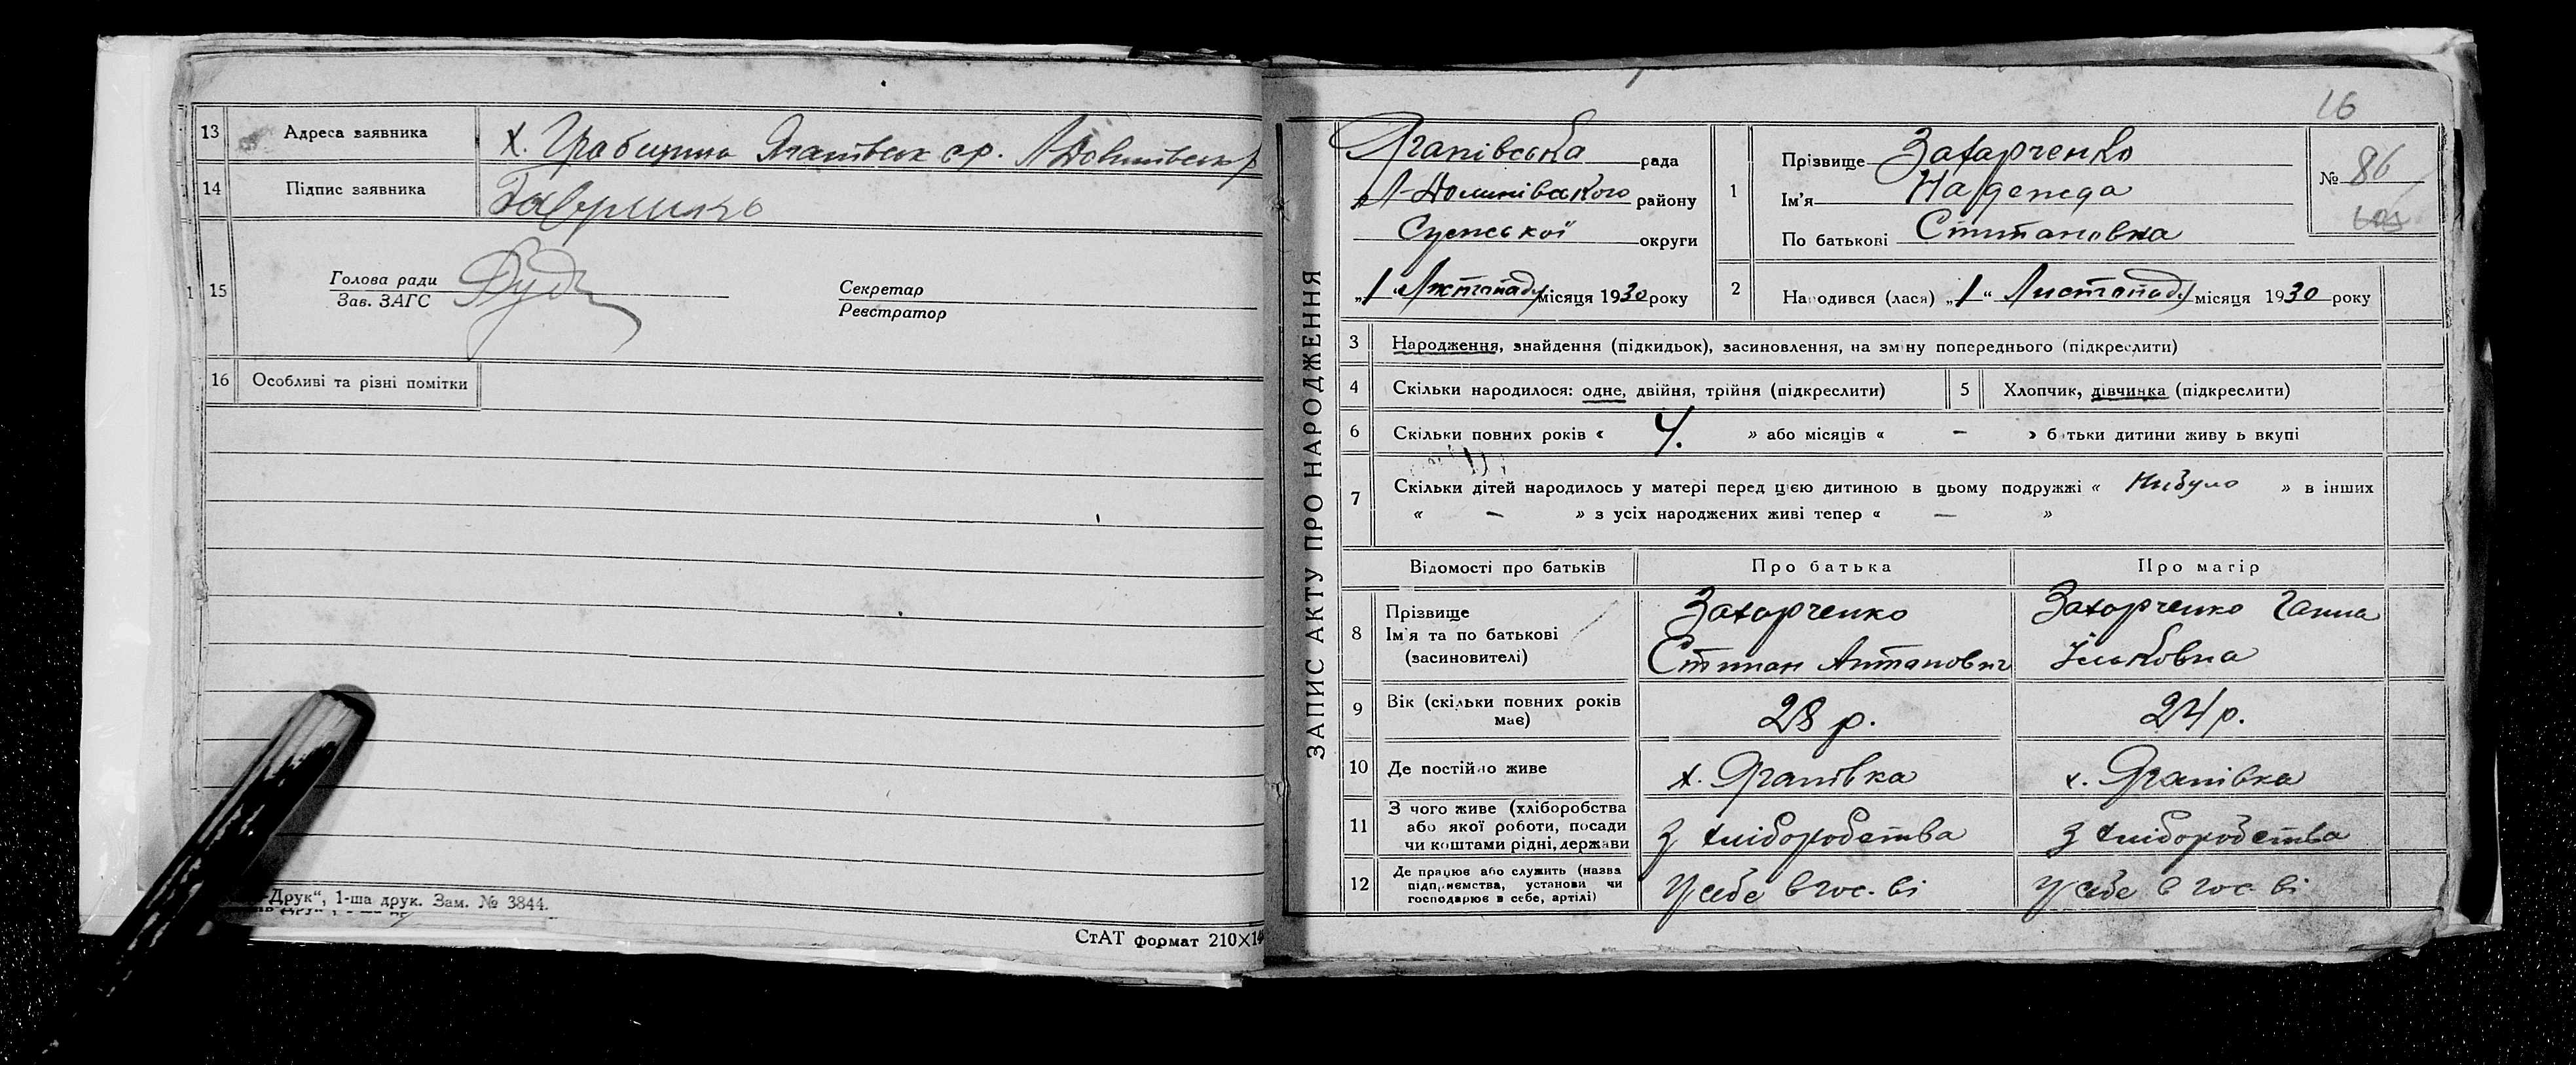 13 Адреса заявника х. Грабщина Ягапівськ ср.
14 Підпис заявника Гавришко
15 Голова ради
Зав. ЗАГС
Секретар
Реєстратор
16 Особливі та різні помітки
Друк“, 1-ша друк. Зам. № 3844.
СтАТ формат 210×14
16
ЗАПИС АКТУ ПРО НАРОДЖЕННЯ
Ягапівська рада
району
Сумської округи
„1 “ Листопаду місяця 1930 року
1 Прізвище Захарченко
Ім'я Надежда
По батькові Стипановна
№ 86
2 Народився (лася) „1“ Листопаду місяця 1930 року
3 Народження, знайдення (підкидьок), засиновлення, на зміну попереднього (підкреслити)
4 Скільки народилося: одне, двійня, трійня (підкреслити) 5 Хлопчик, дівчинка (підкреслити)
6 Скільки повних років « 4. » або місяців « – » батьки дитини живуть вкупі
7 Скільки дітей народилось у матері перед цією дитиною в цьому подружжі « Нибуло » в інших
« – » з усіх народжених живі тепер « — »
Відомості про батьків Про батька Про матір
8 Прізвище
Ім'я та по батькові
(засиновителі)
Захарченко
Стипан Антанович
Захорченко Ганна
Ільковна
9 Вік (скільки повних років
має)
28 р. 24 р.
10 Де постійно живе х. Ягапівка х. Ягапівка
11 З чого живе (хліборобства
або якої роботи, посади
чи коштами рідні, держави
З хліборобства З хліборобства
12 Де працює або служить (назва
підприємства, установи чи
господарює в себе, артілі)
У себе в гос-ві У себе в гос-ві